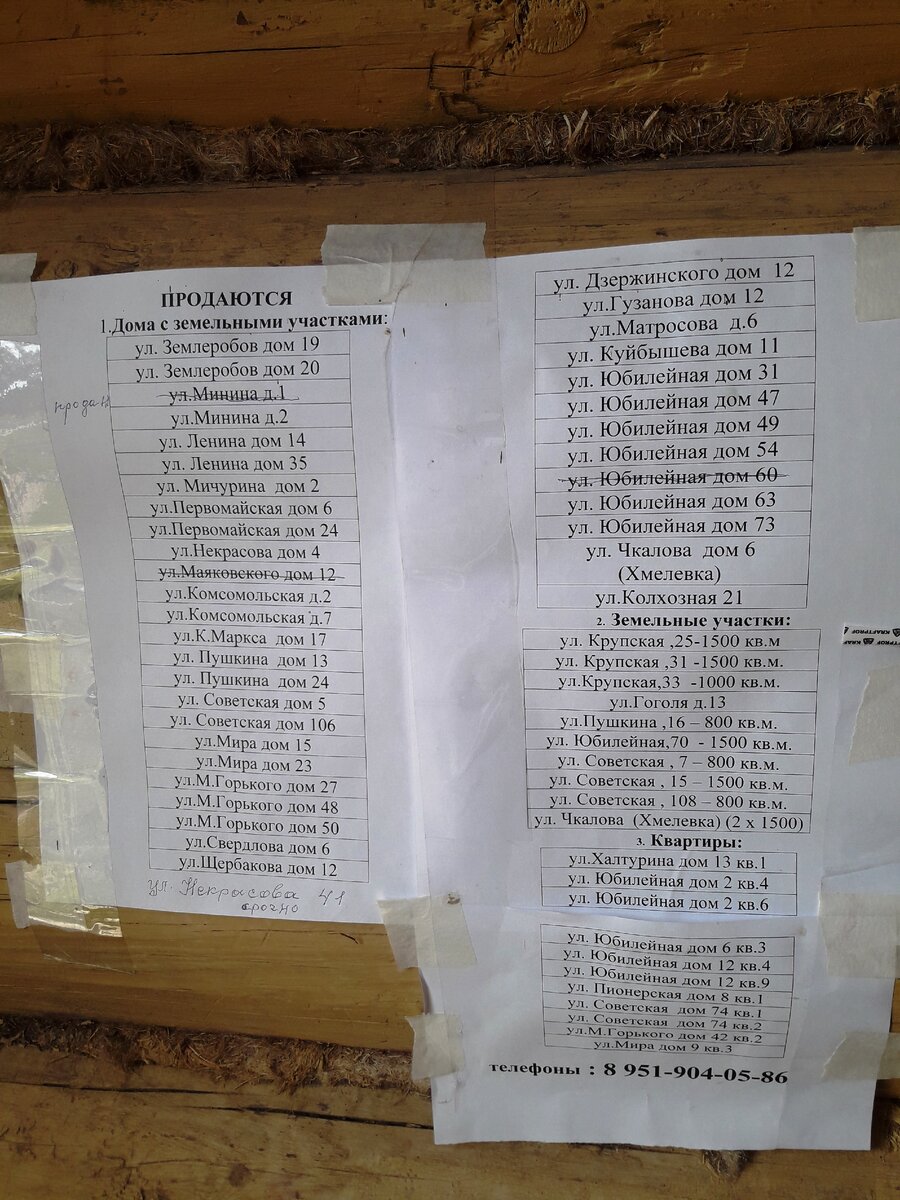 ПРОДАЮТСЯ
1.Дома с земельными участками:
ул. Землеробов дом 19
ул. Землеробов дом 20
ул.Минина д.1
ул.Минина д.2
ул. Ленина дом 14
ул. Ленина дом 35
ул. Мичурина дом 2
ул.Первомайская дом 6
ул.Первомайская дом 24
ул.Некрасова дом 4
ул.Маяковского дом 12
ул.Комсомольская д.2
ул.Комсомольская д.7
ул.К.Маркса дом 17
ул. Пушкина дом 13
ул. Пушкина дом 24
ул. Советская дом 5
ул. Советская дом 106
ул.Мира дом 15
ул.Мира дом 23
ул.М.Горького дом 27
ул.М.Горького дом 48
ул.М.Горького дом 50
ул.Свердлова дом 6
ул.Щербакова дом 12
ул. Некрасова 41
срочно
ул. Дзержинского дом 12
ул.Гузанова дом 12
ул.Матросова д.6
ул. Куйбышева дом 11
ул. Юбилейная дом 31
ул. Юбилейная дом 47
ул. Юбилейная дом 49
ул. Юбилейная дом 54
ул. Юбилейная дом 60
ул. Юбилейная дом 63
ул. Юбилейная дом 73
ул. Чкалова дом 6
(Хмелевка)
ул.Колхозная 21
2. Земельные участки:
ул. Крупская ,25-1500 кв.м
ул. Крупская ,31 -1500 кв.м.
ул.Крупская,33 -1000 кв.м.
ул.Гоголя д.13
ул.Пушкина ,16 – 800 кв.м.
ул. Юбилейная,70 - 1500 кв.м.
ул. Советская , 7 – 800 кв.м.
ул. Советская , 15 – 1500 кв.м.
ул. Советская , 108 – 800 кв.м.
ул. Чкалова (Хмелевка) (2 х 1500)
3. Квартиры:
ул.Халтурина дом 13 кв.1
ул. Юбилейная дом 2 кв.4
ул. Юбилейная дом 2 кв.6
ул. Юбилейная дом 6 кв.3
ул. Юбилейная дом 12 кв.4
ул. Юбилейная дом 12 кв.9
ул. Пионерская дом 8 кв.1
ул. Советская дом 74 кв.1
ул. Советская дом 74 кв.2
ул.М.Горького дом 42 кв.2
ул.Мира дом 9 кв.3
телефоны : 8 951-904-05-86
KRAFTPROF